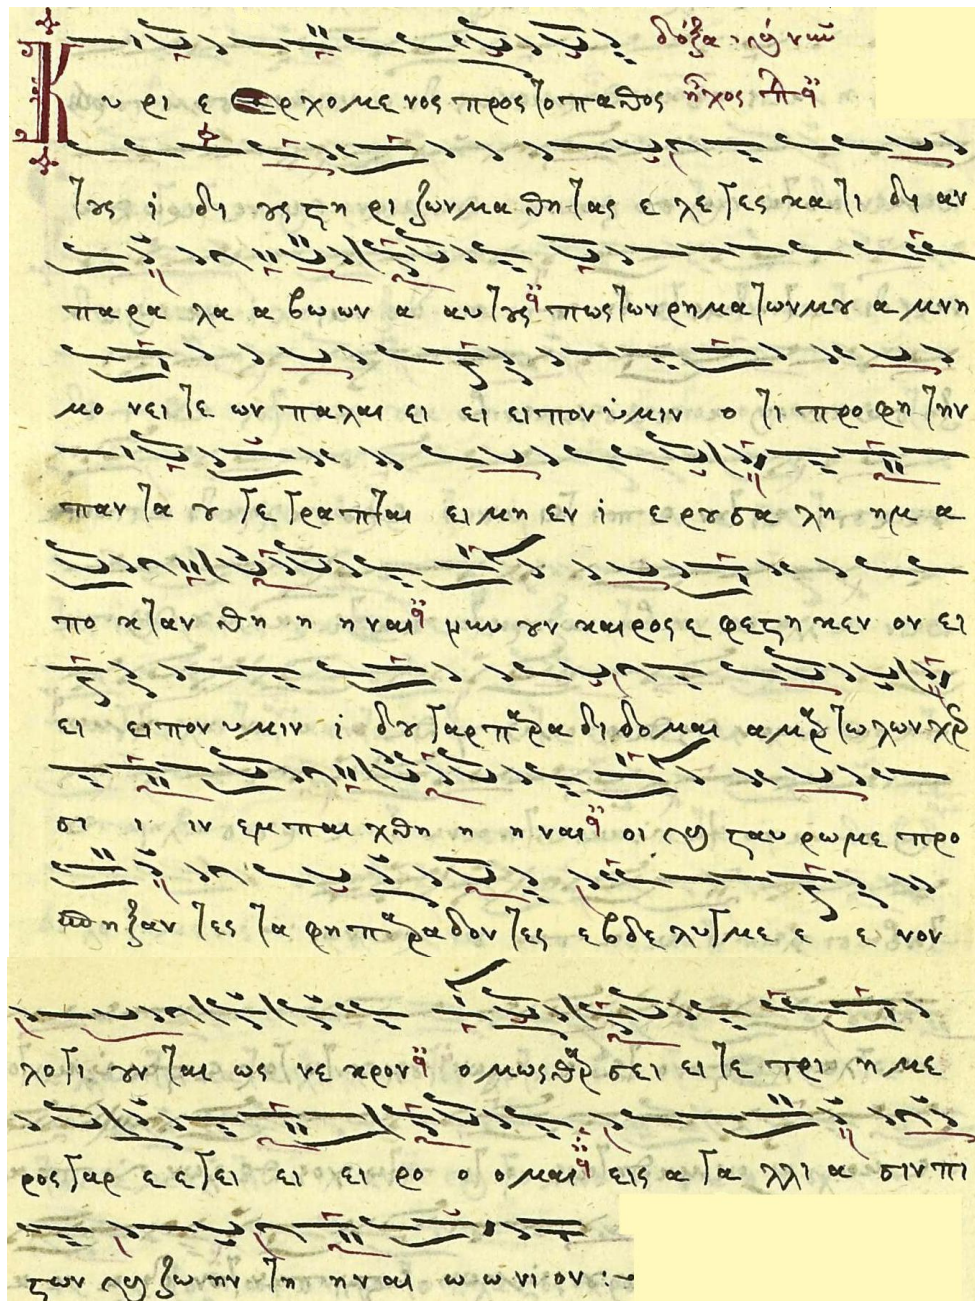 δόξα · καὶ νῦν
Κυ ρι ε ερχομενος προς το παθος ἦχος πλ ᾳ
τους ι δι ους στη ρι ζων μα θη τας ε λε γες κα τι δι αν
παρα λα α βω ων α αυ τους πως των ρηματων μου α μνη
μο νει τε ων παλαι ει ει ειπον ὑμιν ο τι προφη την
παντα ου γε γραπται ει μη εν ι ε ρουσα λη ημ α
πο κταν θη η η ναι μυυ υν καιρος ε φεστη κεν ον ει
ει ειπον υμιν ι δου γαρ παραδιδομαι αμαρτωλων χερ
σι ι ιν εμπαι χθη η η ναι οι και σταυ ρω με προ
σπηξαντες ταφη παραδοντες εβδελυγμε ε ε νον
λογι ουνται ως νε κρον ομως θαρ σει ειτε τρι η με
ρος γαρ ε ε γει ει ει ρο ο ομαι εις α γα λλι α σιν πι
στων και ζωην τη ην αι ω ω νι ον :~